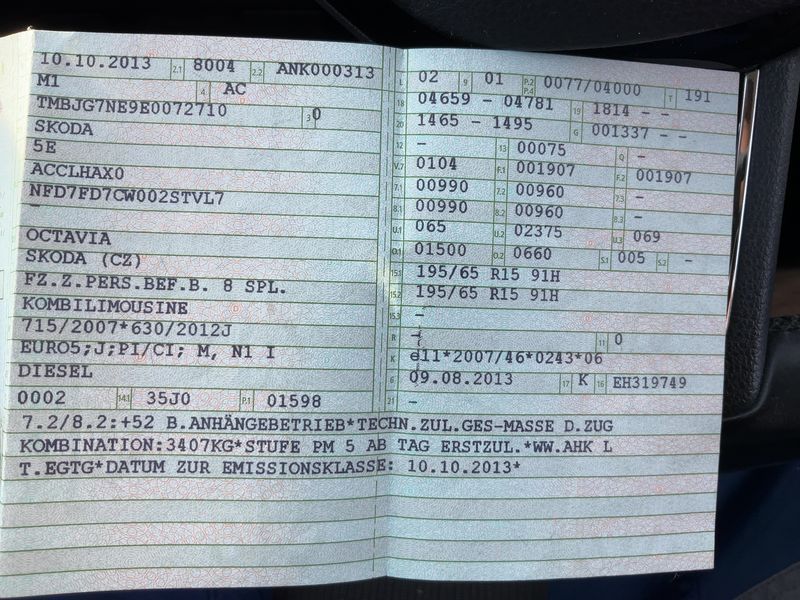 10.10.2013 2.1 8004 2.2 ANK000313
M1 4 AC
TMBJG7NE9E0072710 3 0
SKODA
5E
ACCLHAX0
NFD7FD7CW002STVL7
–
OCTAVIA
SKODA (CZ)
FZ.Z.PERS.BEF.B. 8 SPL.
KOMBILIMOUSINE
715/2007*630/2012J
EURO5;J;PI/CI; M, N1 I
DIESEL
0002 14.1 35J0 P.1 01598
L 02 9 01 P.2 P.4 0077/04000 T 191
18 04659 - 04781 19 1814 - -
20 1465 - 1495 G 001337 - -
12 - 13 00075 Q -
V.7 0104 F.1 001907 F.2 001907
7.1 00990 7.2 00960 7.3 -
8.1 00990 8.2 00960 8.3 -
U.1 065 U.2 02375 U.3 069
O.1 01500 O.2 0660 S.1 005 S.2 -
15.1 195/65 R15 91H
15.2 195/65 R15 91H
15.3 -
R - 11 0
K e11*2007/46*0243*06
6 09.08.2013 17 K 16 EH319749
21 -
7.2/8.2:+52 B.ANHÄNGEBETRIEB*TECHN.ZUL.GES-MASSE D.ZUG
KOMBINATION:3407KG*STUFE PM 5 AB TAG ERSTZUL.*WW.AHK L
T.EGTG*DATUM ZUR EMISSIONSKLASSE: 10.10.2013*